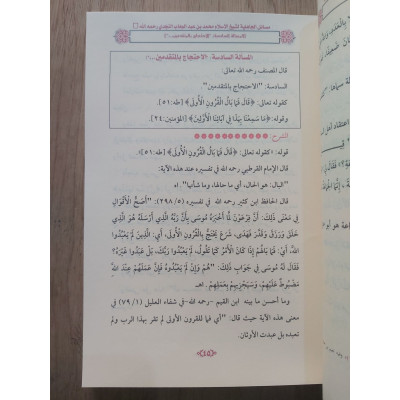 مسائل الجاهلية لشيخ الإسلام محمد بن عبد الوهاب النجدي رحمه الله
المسألة السادسة: الاحتجاج بالمتقدمين
المسألة السادسة: الاحتجاج بالمتقدمين..
قال المصنف رحمه الله تعالى:
السادسة: "الاحتجاج بالمتقدمين".
كقوله تعالى: ﴿قَالَ فَمَا بَالُ الْقُرُونِ الْأُولَى﴾ [طه:٥١].
وقوله: ﴿مَا سَمِعْنَا بِهَذَا فِي آبَائِنَا الْأَوَّلِينَ﴾ [المؤمنين:٢٤].
الشرح:
قوله: "كقوله تعالى: ﴿قَالَ فَمَا بَالُ الْقُرُونِ الْأُولَى﴾ [طه:٥١].
قال الإمام القرطبي رحمه الله في تفسيره عند هذه الآية:
"البال: هو الحال، أي ما حالها، وما شأنها". اهـ
قال الحافظ ابن كثير رحمه الله في تفسيره (٢٩٨/٥): "أَصَحُّ الْأَقْوَالِ
فِي مَعْنَى ذَلِكَ: أَنَّ فِرْعَوْنَ لَمَّا أَخْبَرَهُ مُوسَى بِأَنَّ رَبَّهُ الَّذِي أَرْسَلَهُ هُوَ الَّذِي
خَلَقَ وَرَزَقَ وَقَدَّرَ فَهَدَى، شَرَعَ يَحْتَجُّ بِالْقُرُونِ الْأُولَى، أَيِ: الَّذِينَ لَمْ يَعْبُدُوا
اللَّهَ، أَيْ: فَمَا بَالُهُمْ إِذَا كَانَ الْأَمْرُ كَمَا تَقُولُ، لَمْ يَعْبُدُوا رَبَّكَ، بَلْ عَبَدُوا غَيْرَهُ؟
فَقَالَ لَهُ مُوسَى فِي جَوَابِ ذَلِكَ: "هُمْ وَإِنْ لَمْ يَعْبُدُوهُ فَإِنَّ عَمَلَهُمْ عِنْدَ اللَّهِ
مَضْبُوطٌ عَلَيْهِمْ، وَسَيَجْزِيهِمْ بِعَمَلِهِمْ. اهـ
وما أحسن ما بينه ابن القيم -رحمه الله- في شفاء العليل (٧٩/١)
معنى هذه الآية حيث قال: "أي فما للقرون الأولى لم تقر بهذا الرب ولم
تعبده بل عبدت الأوثان.